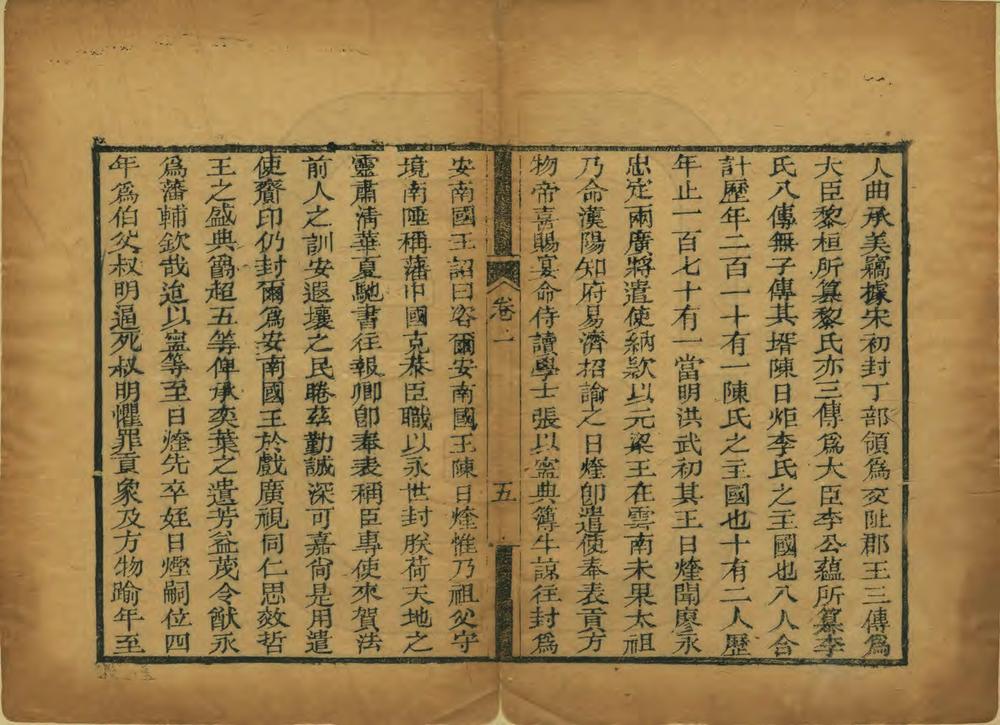 人曲承美竊據宋初封丁部領爲交阯郡王三傳爲
大臣黎桓所篡黎氏亦三傳爲大臣李公蘊所篡李
氏八傳無子傳其壻陳日炬李氏之主國也八人合
計歷年二百一十有一陳氏之主國也十有二人歷
年止一百七十有一當明洪武初其王日煃聞廖永
忠定兩廣將遣使納款以元梁王在雲南未果太祖
乃命漢陽知府易濟招諭之日煃卽遣使奉表貢方
物帝喜賜宴命侍讀學士張以寧典簿牛諒往封爲
卷一
五
安南國王詔曰咨爾安南國王陳日煃惟乃祖父守
境南陲稱藩中國克恭臣職以永世封朕荷天地之
靈肅清華夏馳書往報卿卽奉表稱臣專使來賀法
前人之訓安遐壤之民睠茲勤誠深可嘉尙是用遣
使齎印仍封爾爲安南國王於戲廣視同仁思效哲
王之盛典爵超五等俾承奕葉之遺芳益茂令猷永
爲藩輔欽哉迨以寧等至日煃先卒姪日熞嗣位四
年爲伯父叔明逼死叔明懼罪貢象及方物踰年至